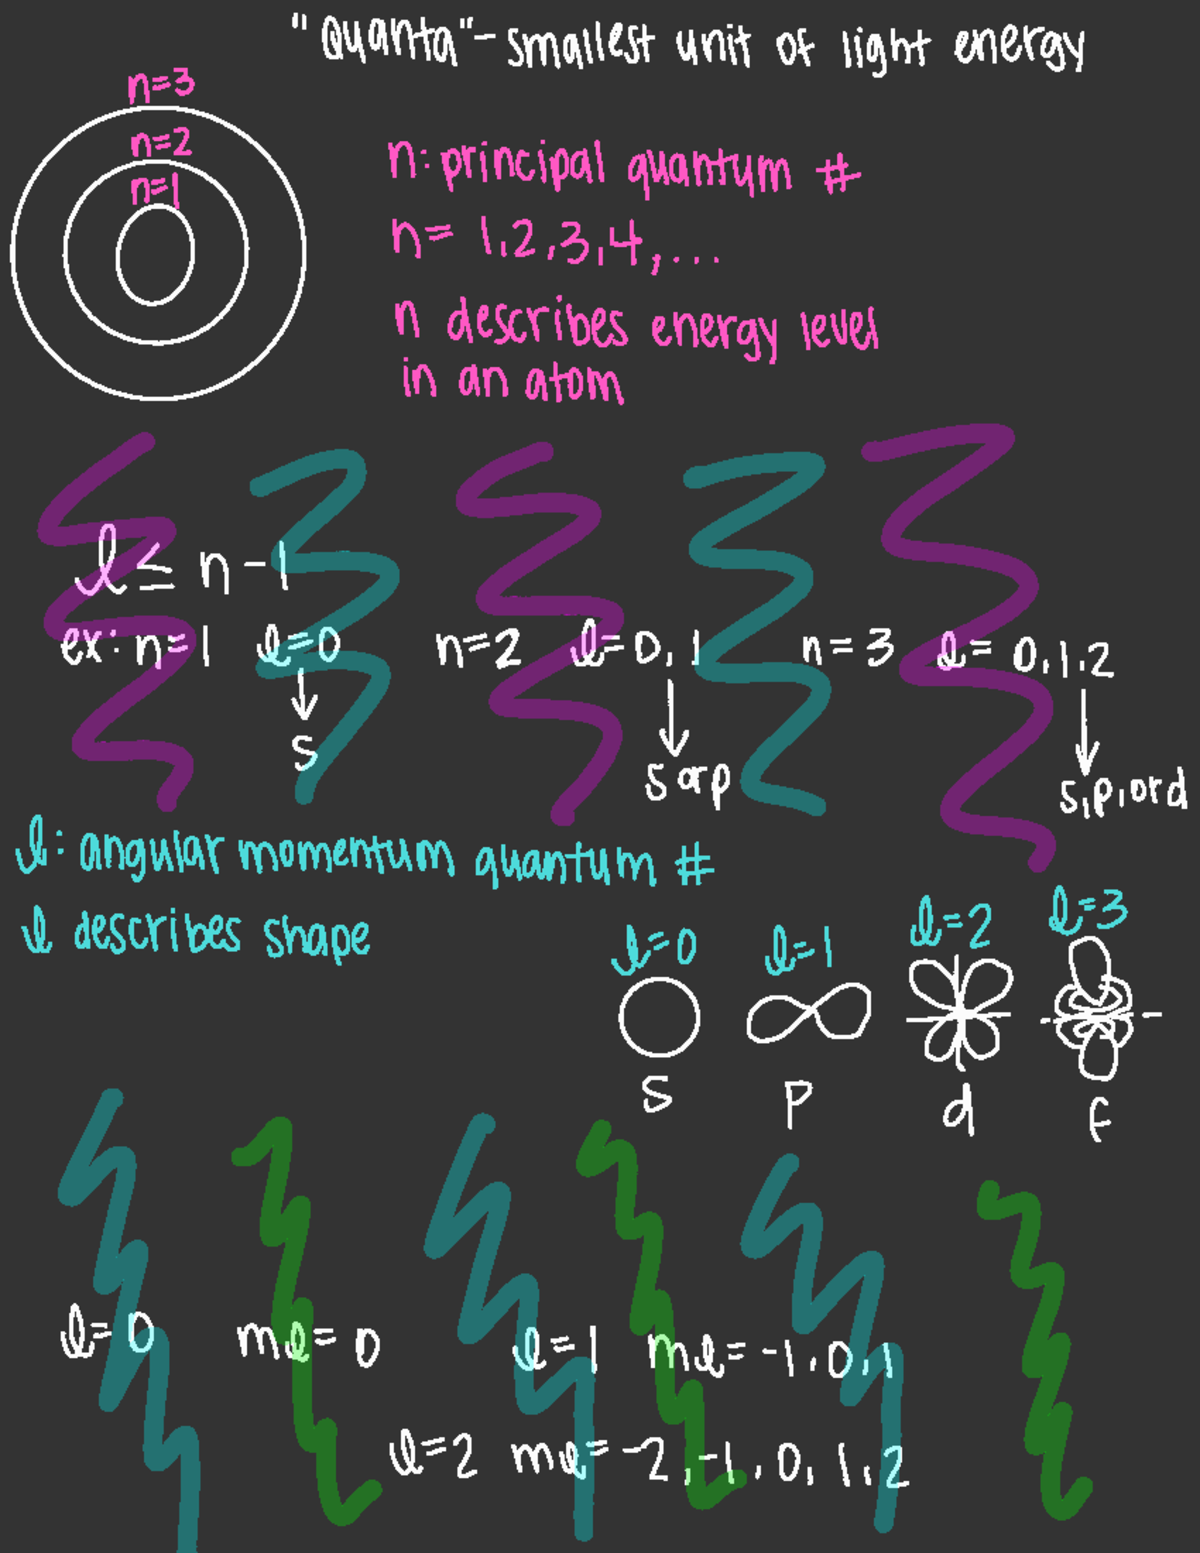 "Quanta"- smallest unit of light energy
n=3
n=2
n=1
n: principal quantum #
n= 1,2,3,4,...
n describes energy level
in an atom
ℓ ≤ n-1
ex: n=1 ℓ=0 n=2 ℓ=0,1 n=3 ℓ= 0,1,2
s
s or p
s,p,or d
ℓ: angular momentum quantum #
ℓ describes shape
ℓ=0 ℓ=1 ℓ=2 ℓ=3
s p d f
ℓ=0 mℓ=0 ℓ=1 mℓ=-1,0,1
ℓ=2 mℓ=-2,-1,0,1,2